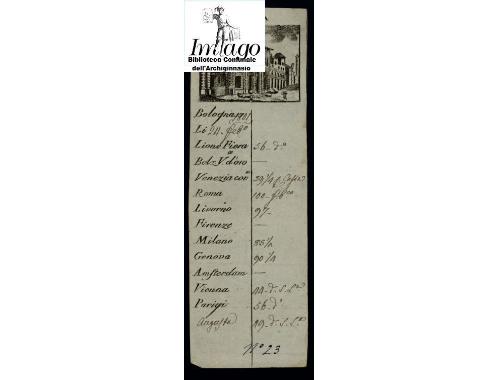 Imago
Biblioteca Comunale
dell'Archiginnasio
Bologna
Li 24 feb.o
Lione Fiera 56 d.o
Bolz. V d'oro —
Venezia con
Roma 100
Livorno 97
Firenze —
Milano 85 1/2
Genova 90 1/4
Amsterdam —
Vienna 44 d. S. L.
Parigi 56 d.
Augusta 49 d. S. L.
N.o 23